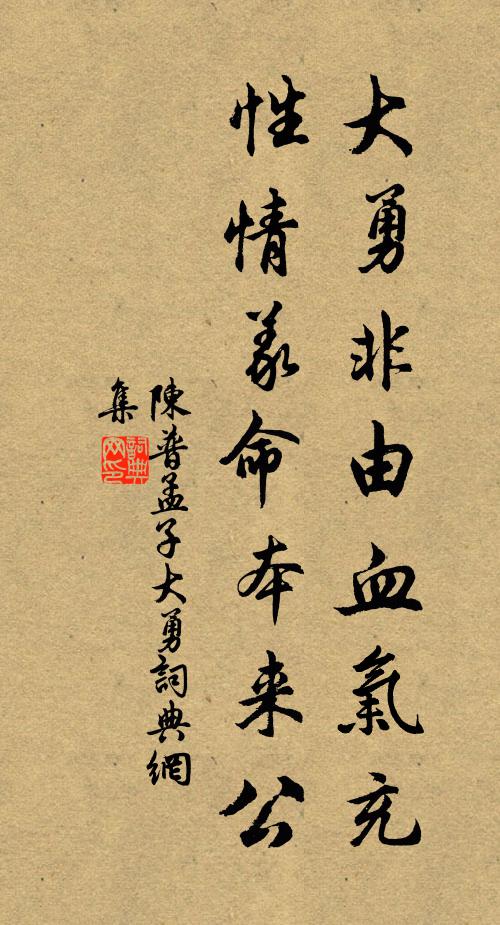 大勇非由血氣充
性情義命本来公
陳普孟子大勇詞典網
集
詞典
网印